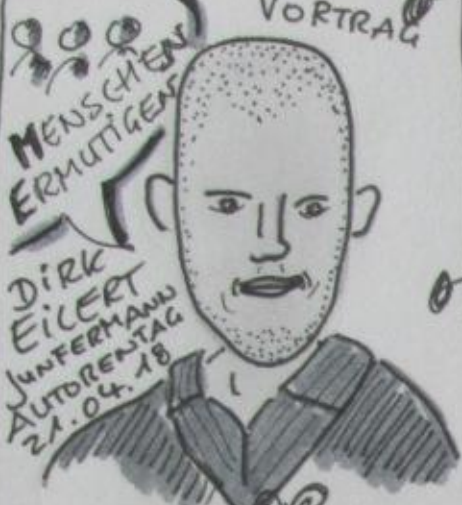 VORTRAG
MENSCHEN
ERMUTIGEN
DIRK
EILERT
JUNFERMANN
AUTORENTAG
21.04.18